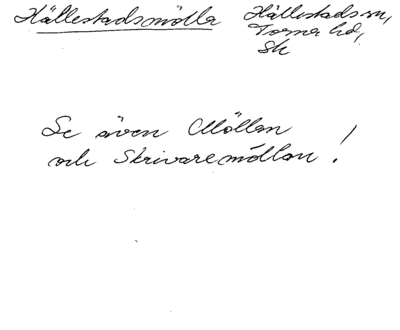 Hällestadsmölla
Hällestads sn,
Torna hd,
Sk
Se även Möllan
och Skrivaremöllan!